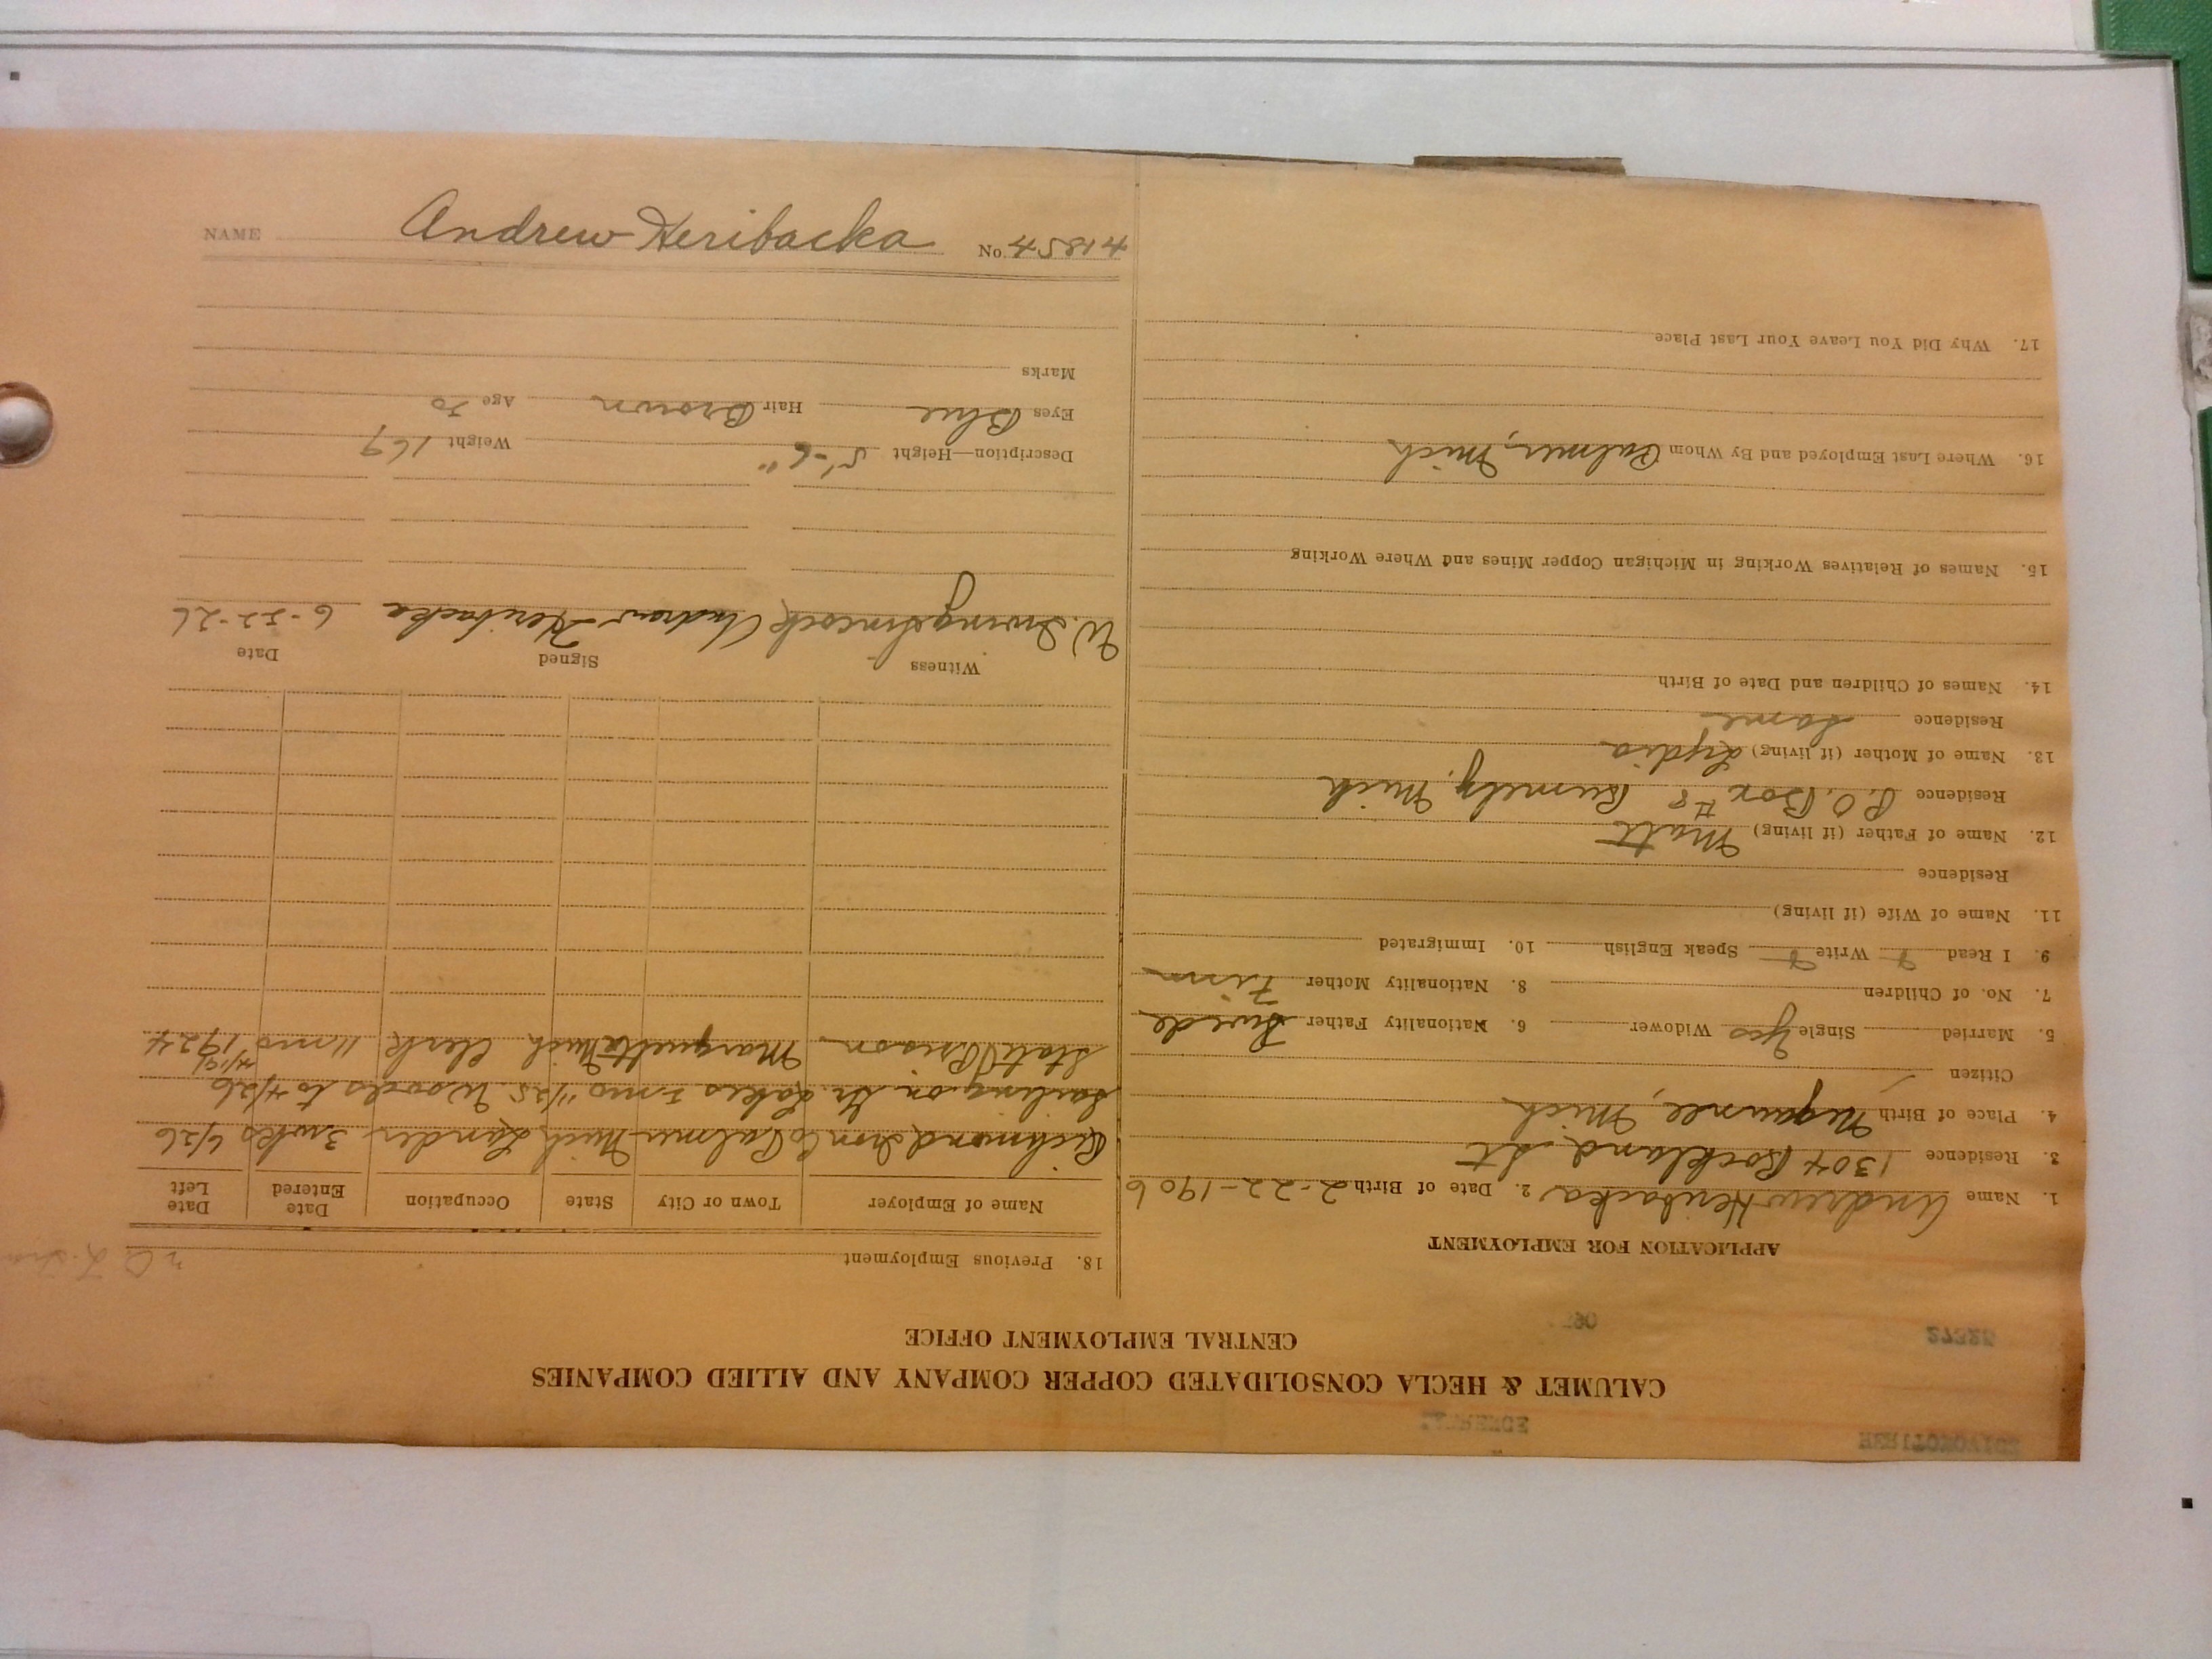 CALUMET & HECLA CONSOLIDATED COPPER COMPANY AND ALLIED COMPANIES
CENTRAL EMPLOYMENT OFFICE
APPLICATION FOR EMPLOYMENT
1. Name Andrew Heribacka 2. Date of Birth 2-22-1906
3. Residence 1304 Rockland St
4. Place of Birth Negaunee, Mich
Citizen
5. Married Single Yes Widower 6. Nationality Father Swede
7. No. of Children 8. Nationality Mother Finn
9. I Read Write Speak English 10. Immigrated
11. Name of Wife (if living)
Residence
12. Name of Father (if living) Matt
Residence P.O. Box #8 Rumely, Mich
13. Name of Mother (if living) Lydia
Residence Same
14. Names of Children and Date of Birth
15. Names of Relatives Working in Michigan Copper Mines and Where Working
16. Where Last Employed and By Whom Palmer, Mich
17. Why Did You Leave Your Last Place
18. Previous Employment
Name of Employer Town or City State Occupation Date Entered Date Left
Richmond Iron Co Palmer Mich Lander 3 wks 6/26
Sailing on Gr. Lakes 11/25 Woods to 4/26
State Prison Marquette Mich Clerk 11 mo 1924
Witness Signed Date
W. Irving Simcock Andrew Heribacka 6-22-26
Description—Height 5'-6" Weight 169
Eyes Blue Hair Brown Age 20
Marks
NAME Andrew Heribacka No. 41854